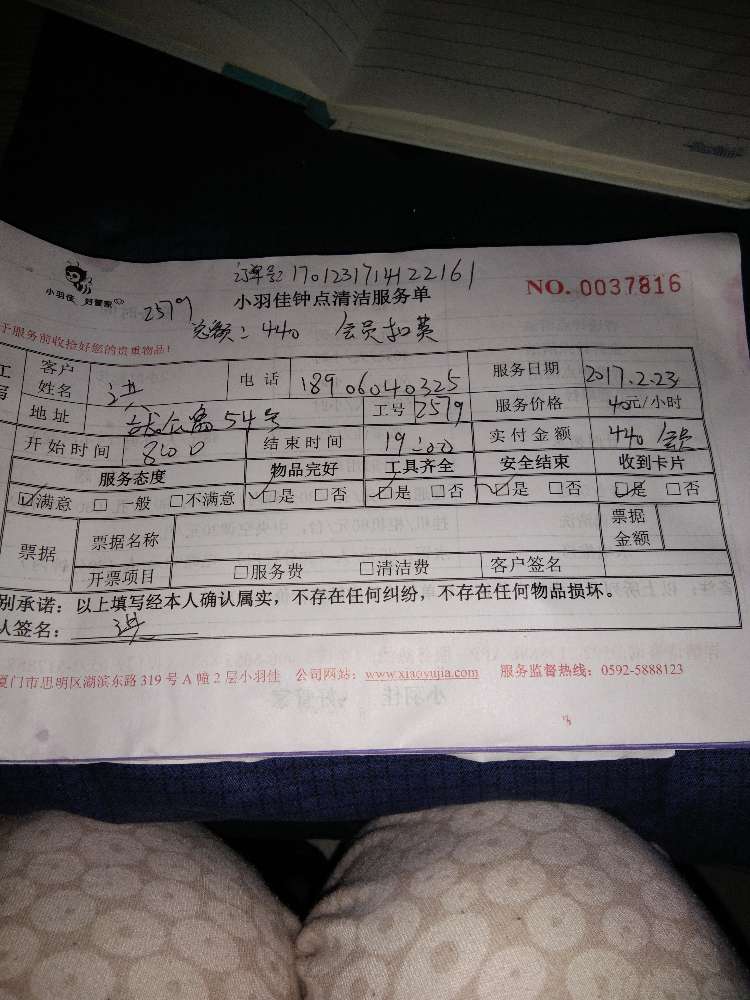 订单号:170123171412 2161
小羽佳 好管家
2579
小羽佳钟点清洁服务单
NO. 0037816
于服务前收捡好您的贵重物品!
总额:440 会员扣费
客户姓名 洪 电话 18906040325 服务日期 2017.2.23
地址 54号 工号 2579 服务价格 40元/小时
开始时间 800 结束时间 19:00 实付金额 440 会员
服务态度 物品完好 工具齐全 安全结束 收到卡片
☑满意 □一般 □不满意 ☑是 □否 ☑是 □否 ☑是 □否 ☑是 □否
票据 票据名称 票据金额
开票项目 □服务费 □清洁费 客户签名
别承诺:以上填写经本人确认属实,不存在任何纠纷,不存在任何物品损坏。
人签名: 洪
厦门市思明区湖滨东路319号A幢2层小羽佳 公司网站:www.xiaoyujia.com 服务监督热线:0592-5888123